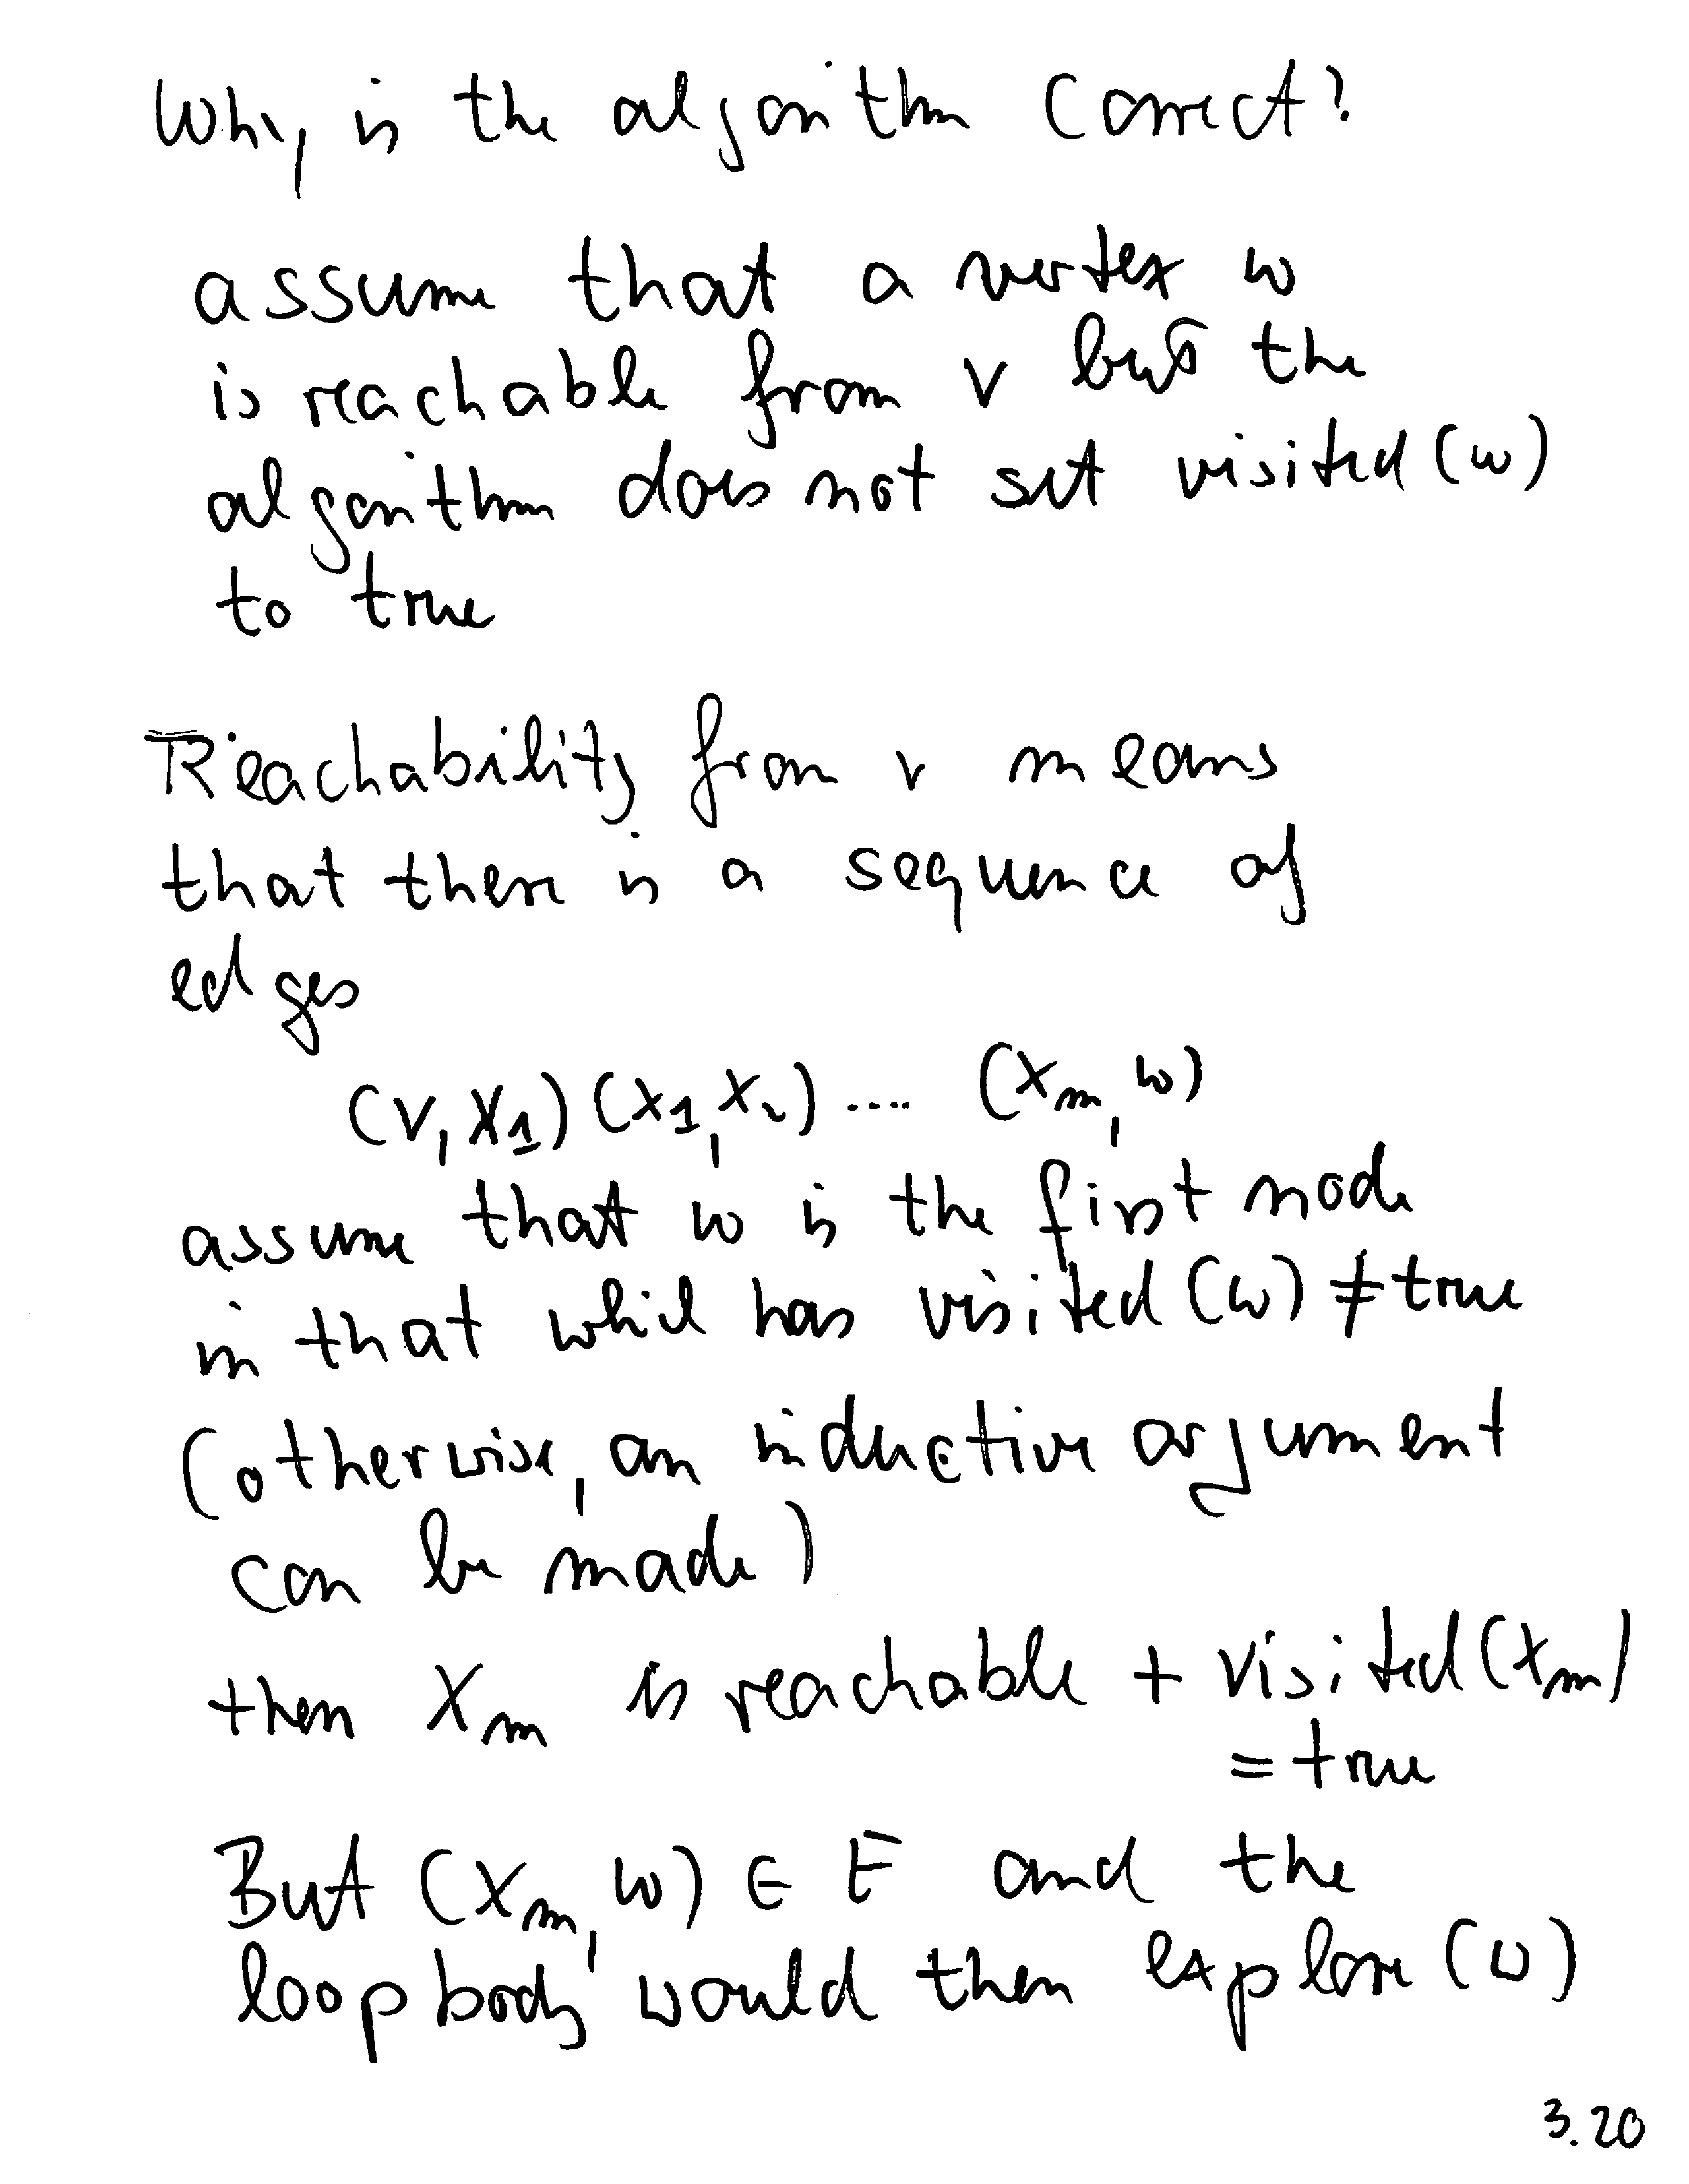 Why is the algorithm correct?
assume that a vertex w
is reachable from v but the
algorithm does not set visited (w)
to true
Reachability from v means
that there is a sequence of
edges
(v, x1) (x1, x2) .... (xm, w)
assume that w is the first node
in that which has visited (w) ≠ true
(otherwise, an inductive argument
can be made)
then xm is reachable + visited (xm)
= true
But (xm, w) ∈ E and the
loop body would then explore (w)
3.20